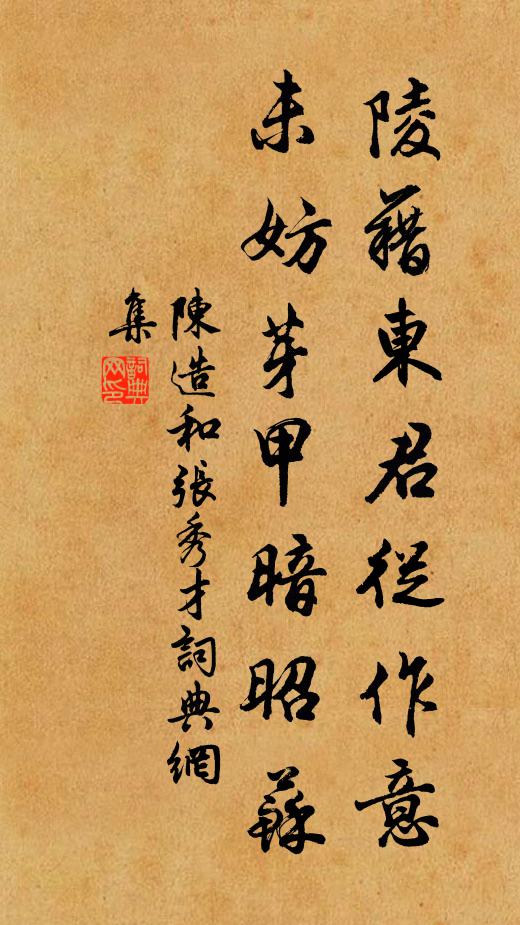 陵藉東君從作意
未妨芽甲暗昭蘇
陳造和張秀才詞典網
集
詞典
网印